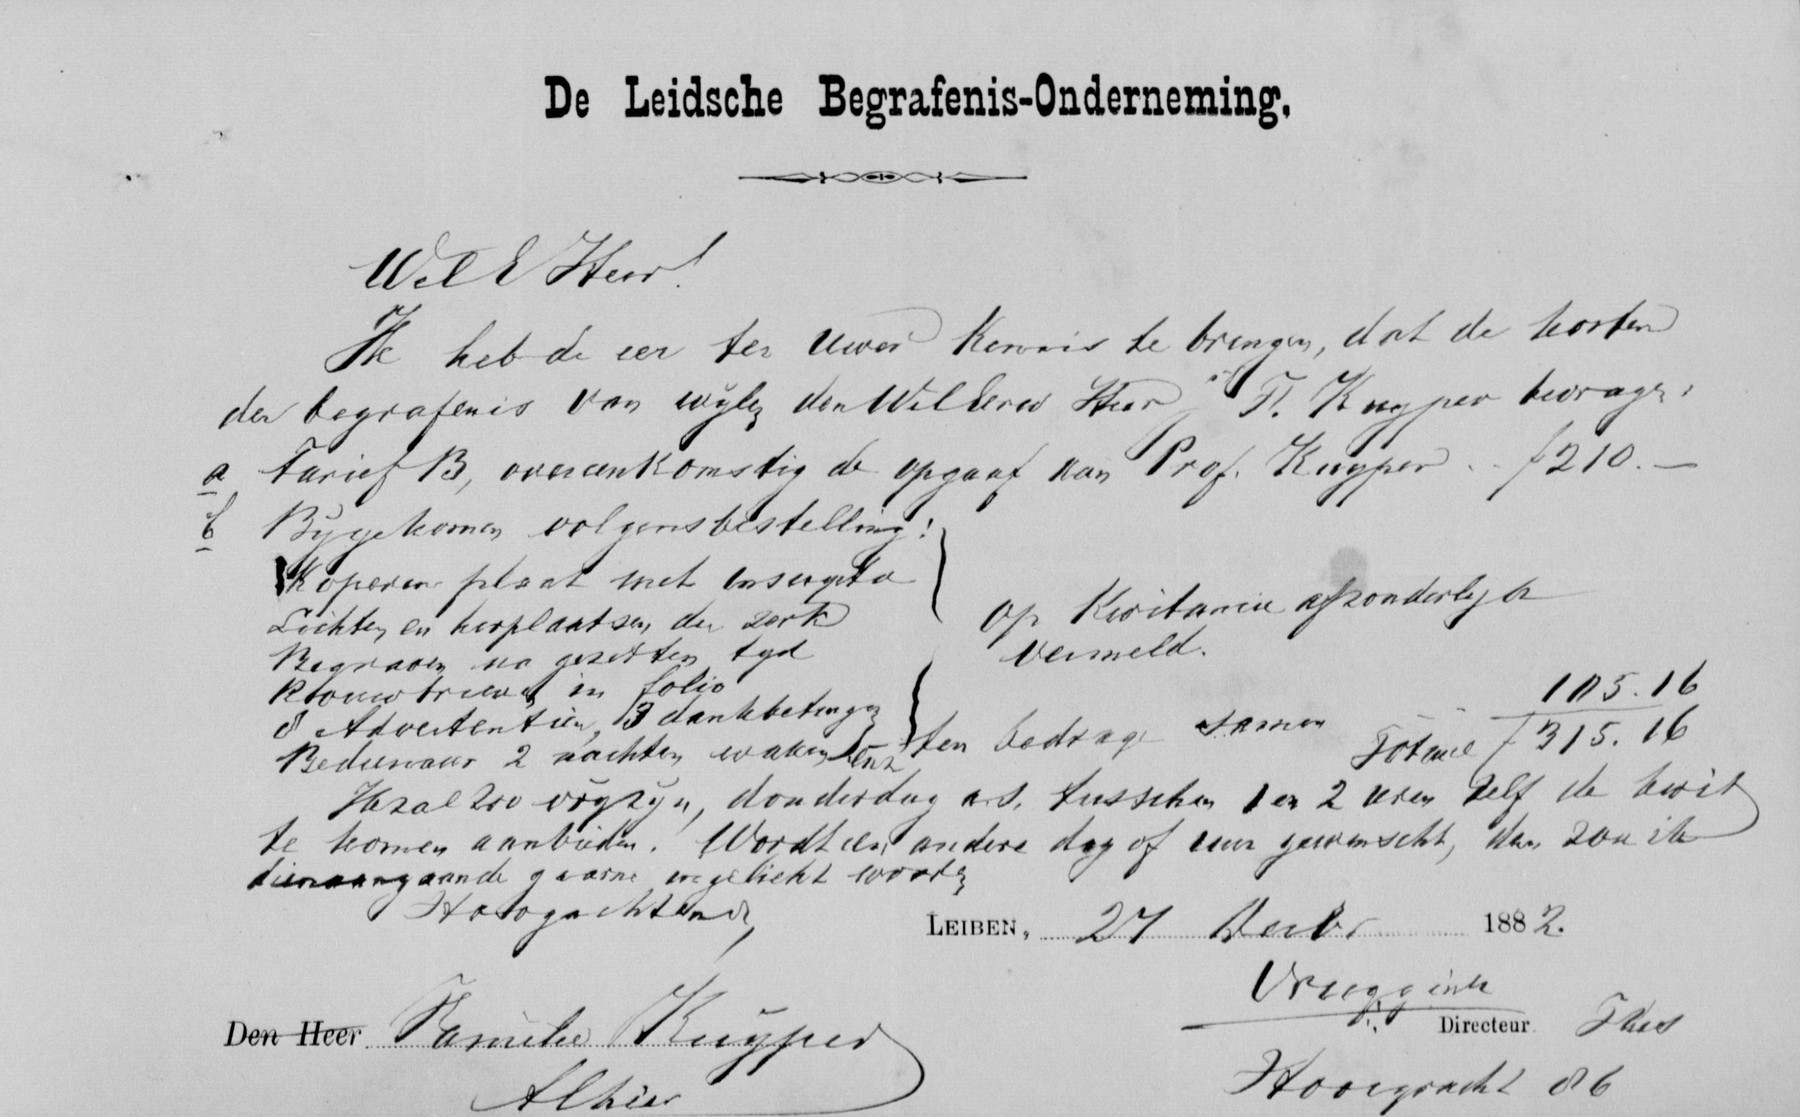 De Leidsche Begrafenis-Onderneming.
Wel E Heer!
Ik heb de eer ter Uwer Kennis te brengen, dat de kosten
der begrafenis van wijlen den WelEerw Heer J. F. Kuyper bedragen:
a Tarief B, overeenkomstig de opgaaf van Prof. Kuyper . . f 210.—
b Bijgekomen volgens bestelling:
Koperen plaat met inscriptie
Lichten en herplaatsen der zerk
op Kwitancie afzonderlijk
vermeld.
Begraven na gezetten tyd
Rouwbrieven in folio
8 Advertentien, 3 dankbetuigen
Bedienaar 2 nachten waken enz
ten bedrage samen 105.16
Totaal f 315.16
Ik zal zoo vrij zijn, donderdag a.s. tusschen 1 en 2 uren zelf de kwit
te komen aanbieden. Wordt een andere dag of uur gewenscht, dan zou ik
dienaangaande gaarne ingelicht worden
Hoogachtend,
LEIDEN, 27 Decbr 1882.
Vruggink
Directeur
Den Heer Familie Kuyper
Alhier
Hooigracht 86